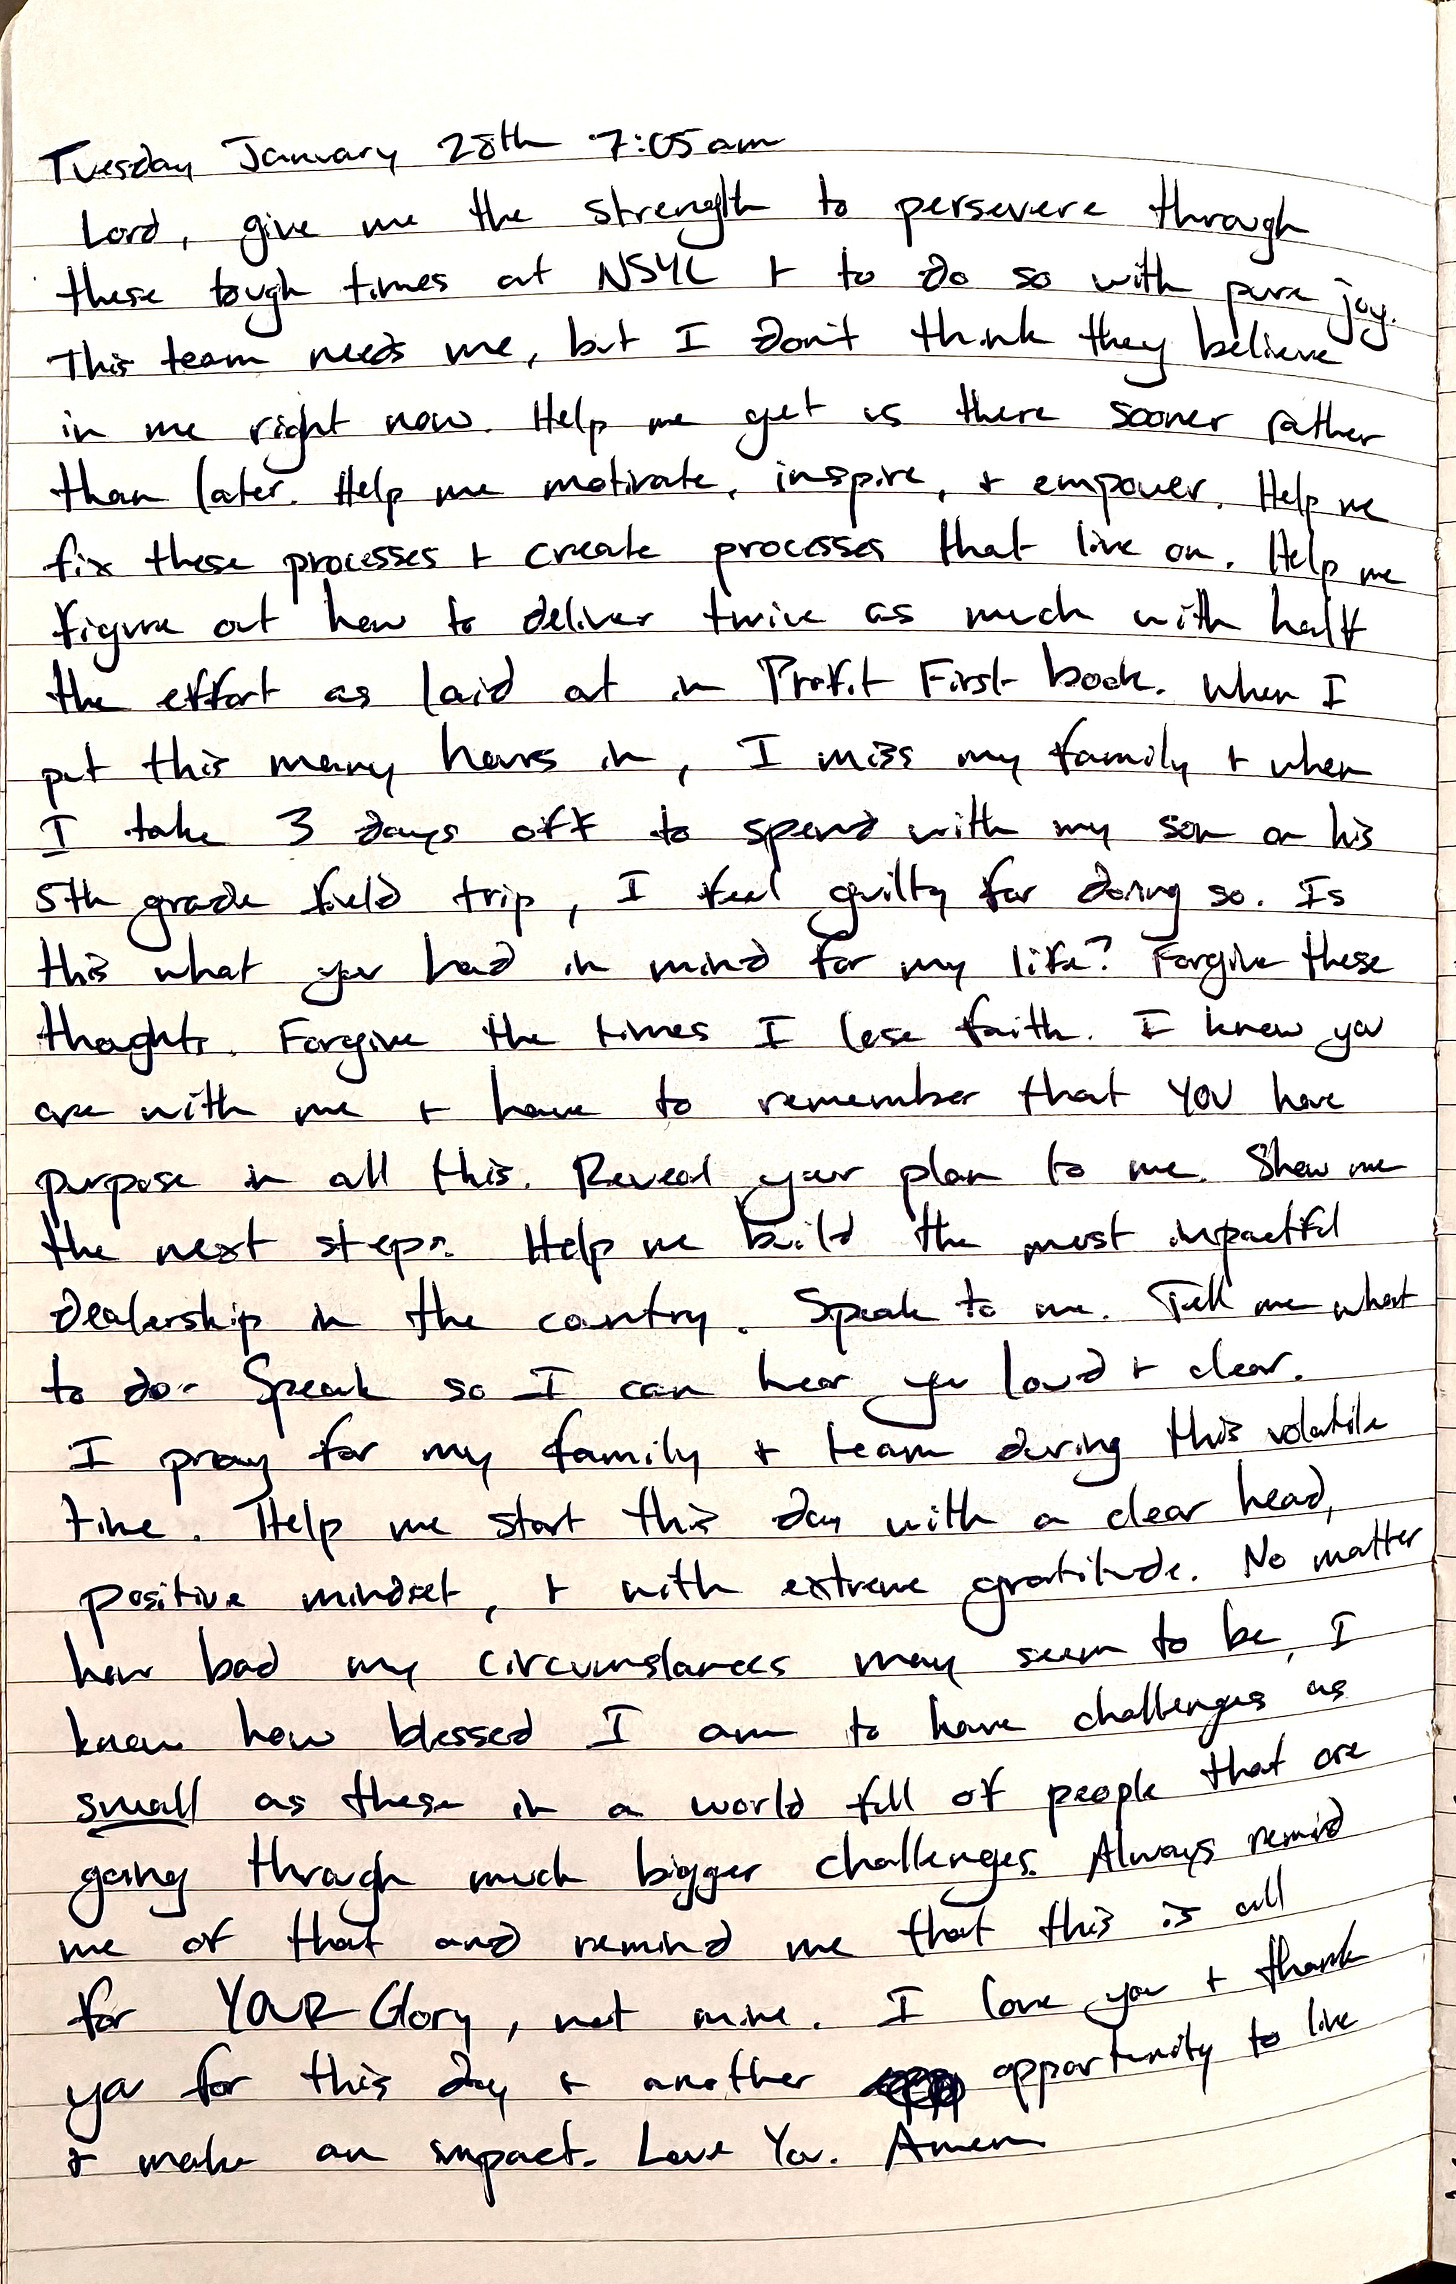 Tuesday January 28th 7:05am
Lord, give me the strength to persevere through
these tough times at NSYC + to do so with pure joy.
This team needs me, but I don't think they believe
in me right now. Help me get us there sooner rather
than later. Help me motivate, inspire, + empower. Help me
fix these processes + create processes that live on. Help me
figure out how to deliver twice as much with half
the effort as laid out in Profit First book. When I
put this many hours in, I miss my family + when
I take 3 days off to spend with my son on his
5th grade field trip, I feel guilty for doing so. Is
this what you had in mind for my life? Forgive these
thoughts. Forgive the times I lose faith. I know you
are with me + have to remember that YOU have
purpose in all this. Reveal your plan to me. Show me
the next steps. Help me build the most impactful
dealership in the country. Speak to me. Tell me what
to do. Speak so I can hear you loud + clear.
I pray for my family + team during this volatile
time. Help me start this day with a clear head,
positive mindset, + with extreme gratitude. No matter
how bad my circumstances may seem to be, I
know how blessed I am to have challenges as
small as these in a world full of people that are
going through much bigger challenges. Always remind
me of that and remind me that this is all
for YOUR Glory, not mine. I love you + thank
you for this day + another opportunity to live
+ make an impact. Love You. Amen